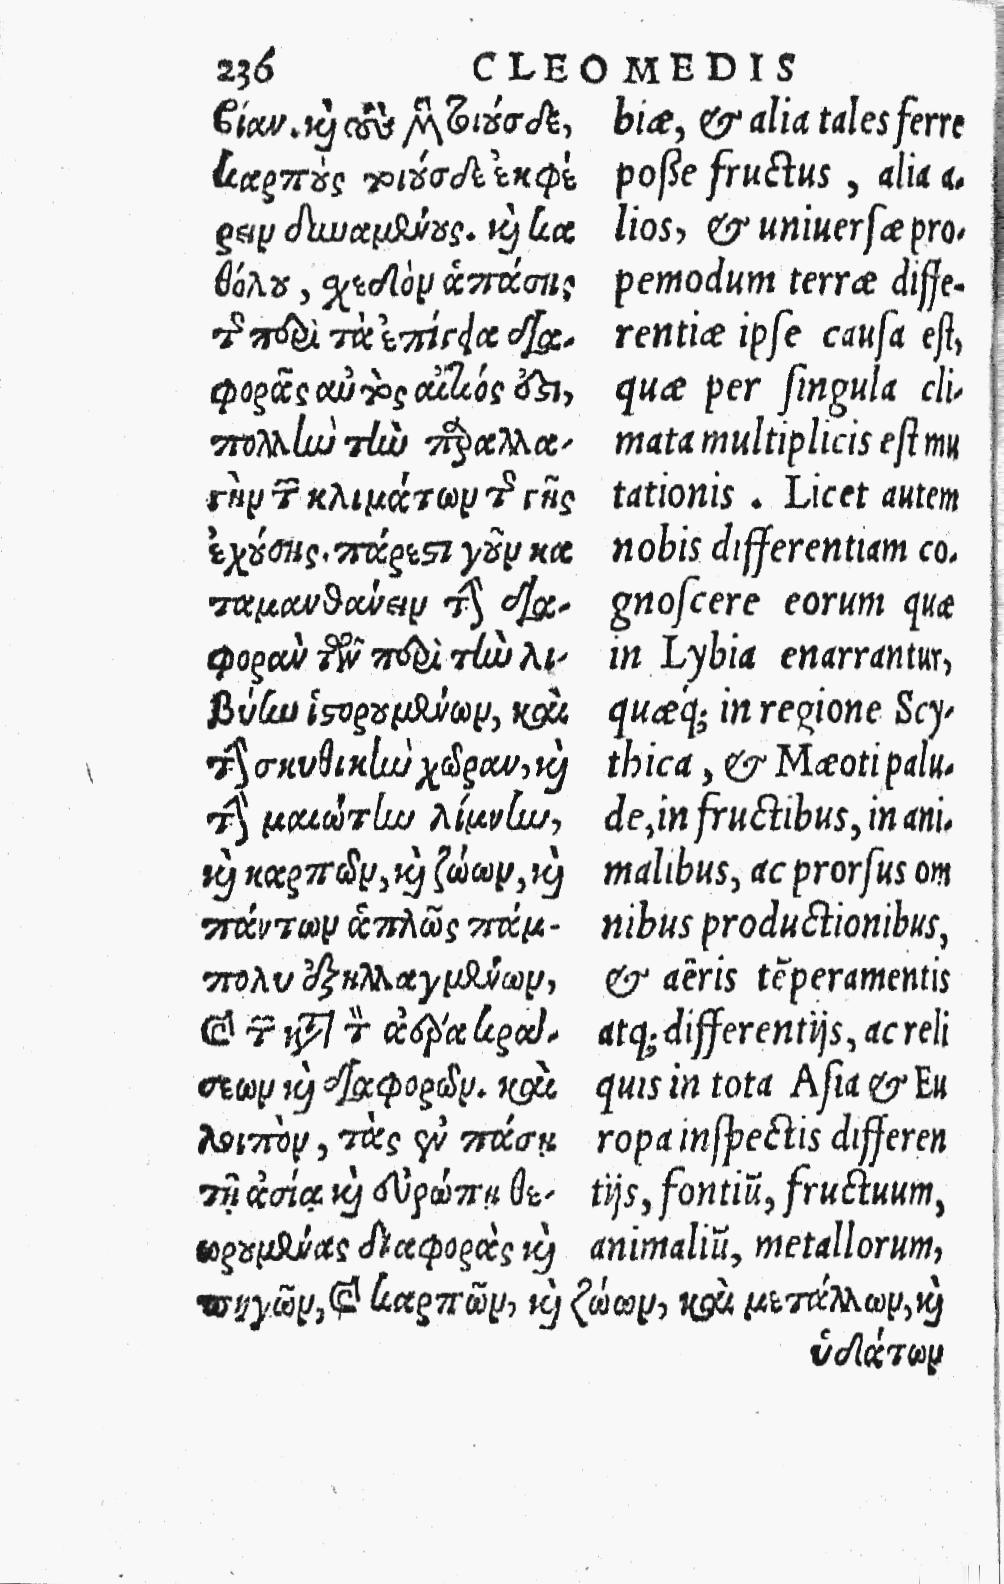 236 CLEOMEDIS
βίαν. καὶ τοιούσδε,
καρποὺς τοιούσδε ἐκφέ
ρειν δυναμένους. καὶ κα
θόλου, σχεδὸν ἁπάσης
τῆς περὶ τὰ ἐπίγεια δια-
φορᾶς αὐτὸς αἴτιός ἐστι,
πολλὴν τὴν παραλλα-
γὴν τῶν κλιμάτων τῆς γῆς
ἐχούσης. πάρεστι γοῦν κα
ταμανθάνειν τὴν δια-
φορὰν τῶν περὶ τὴν λι-
βύην ἱστορουμένων, καὶ
τὴν σκυθικὴν χώραν, καὶ
τὴν μαιώτην λίμνην,
καὶ καρπῶν, καὶ ζώων, καὶ
πάντων ἁπλῶς πάμ-
πολυ ἐξηλλαγμένων,
καὶ τῶν κατὰ τὸν ἀέρα κρά-
σεων καὶ διαφορῶν. καὶ
λοιπὸν, τὰς ἐν πάσῃ
τῇ ἀσίᾳ καὶ εὐρώπῃ θε-
ωρουμένας διαφορὰς καὶ
πηγῶν, καὶ καρπῶν, καὶ ζώων, καὶ μετάλλων, καὶ
ὑδάτων
biæ, & alia tales ferre
posse fructus, alia a-
lios, & uniuersæ pro-
pemodum terræ diffe-
rentiæ ipse causa est,
quæ per singula cli-
mata multiplicis est mu
tationis. Licet autem
nobis differentiam co-
gnoscere eorum quæ
in Lybia enarrantur,
quæq; in regione Scy-
thica, & Mæoti palu-
de, in fructibus, in ani-
malibus, ac prorsus om
nibus productionibus,
& aëris tēperamentis
atq; differentijs, ac reli
quis in tota Asia & Eu
ropa inspectis differen
tijs, fontiū, fructuum,
animaliū, metallorum,